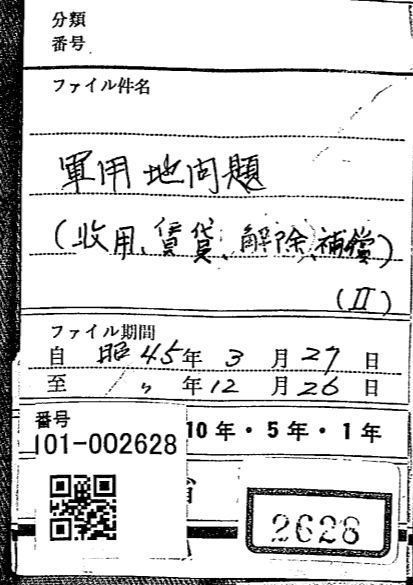 分類
番号
ファイル件名
軍用地問題
(収用、賃貸、解除、補償)
(II)
ファイル期間
自 昭45年3月27日
至 〃年12月26日
10年・5年・1年
番号
101-002628
省
2628